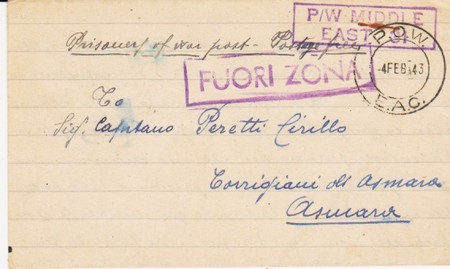 P/W MIDDLE
EAST
Prisoners of war post - Postage free
P.O.W.
-4FEB43
E.A.C.
FUORI ZONA
To
Sig. Capitano Peretti Cirillo
Torrigiani di Asmara
Asmara